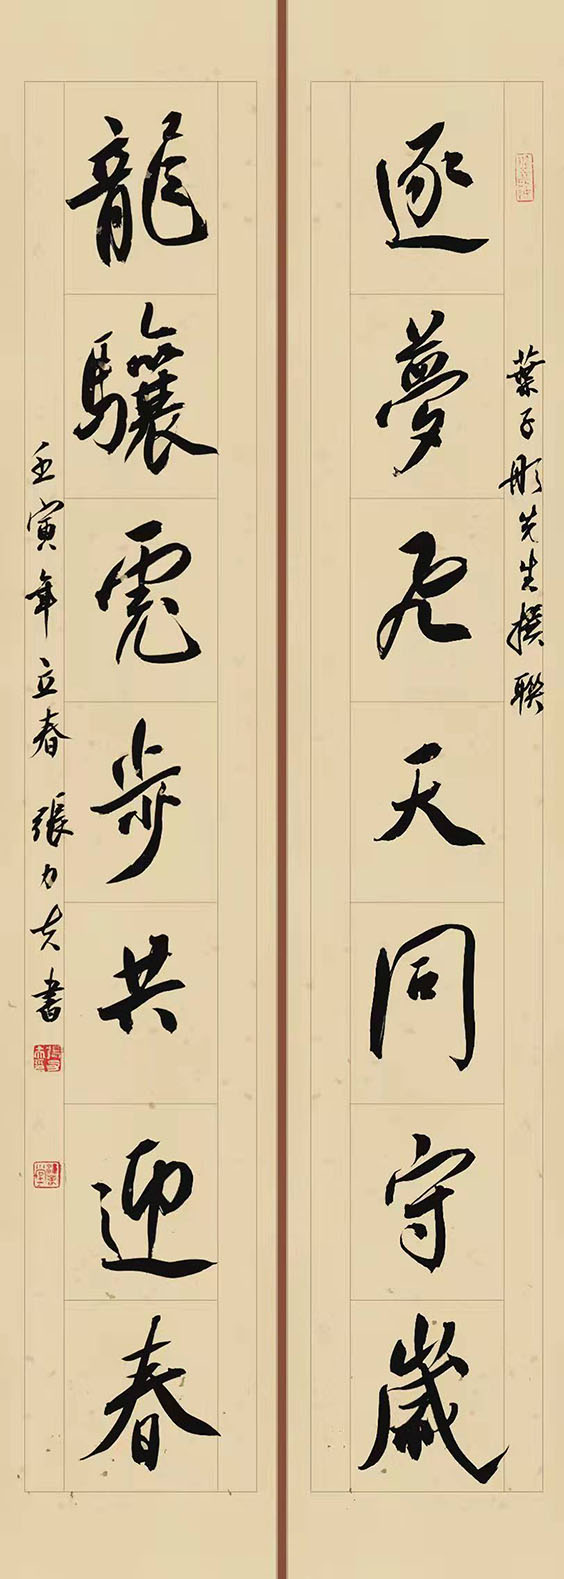 葉子彤先生撰聯
逐夢飛天同守歲
龍驤虎步共迎春
壬寅年立春 張力夫書